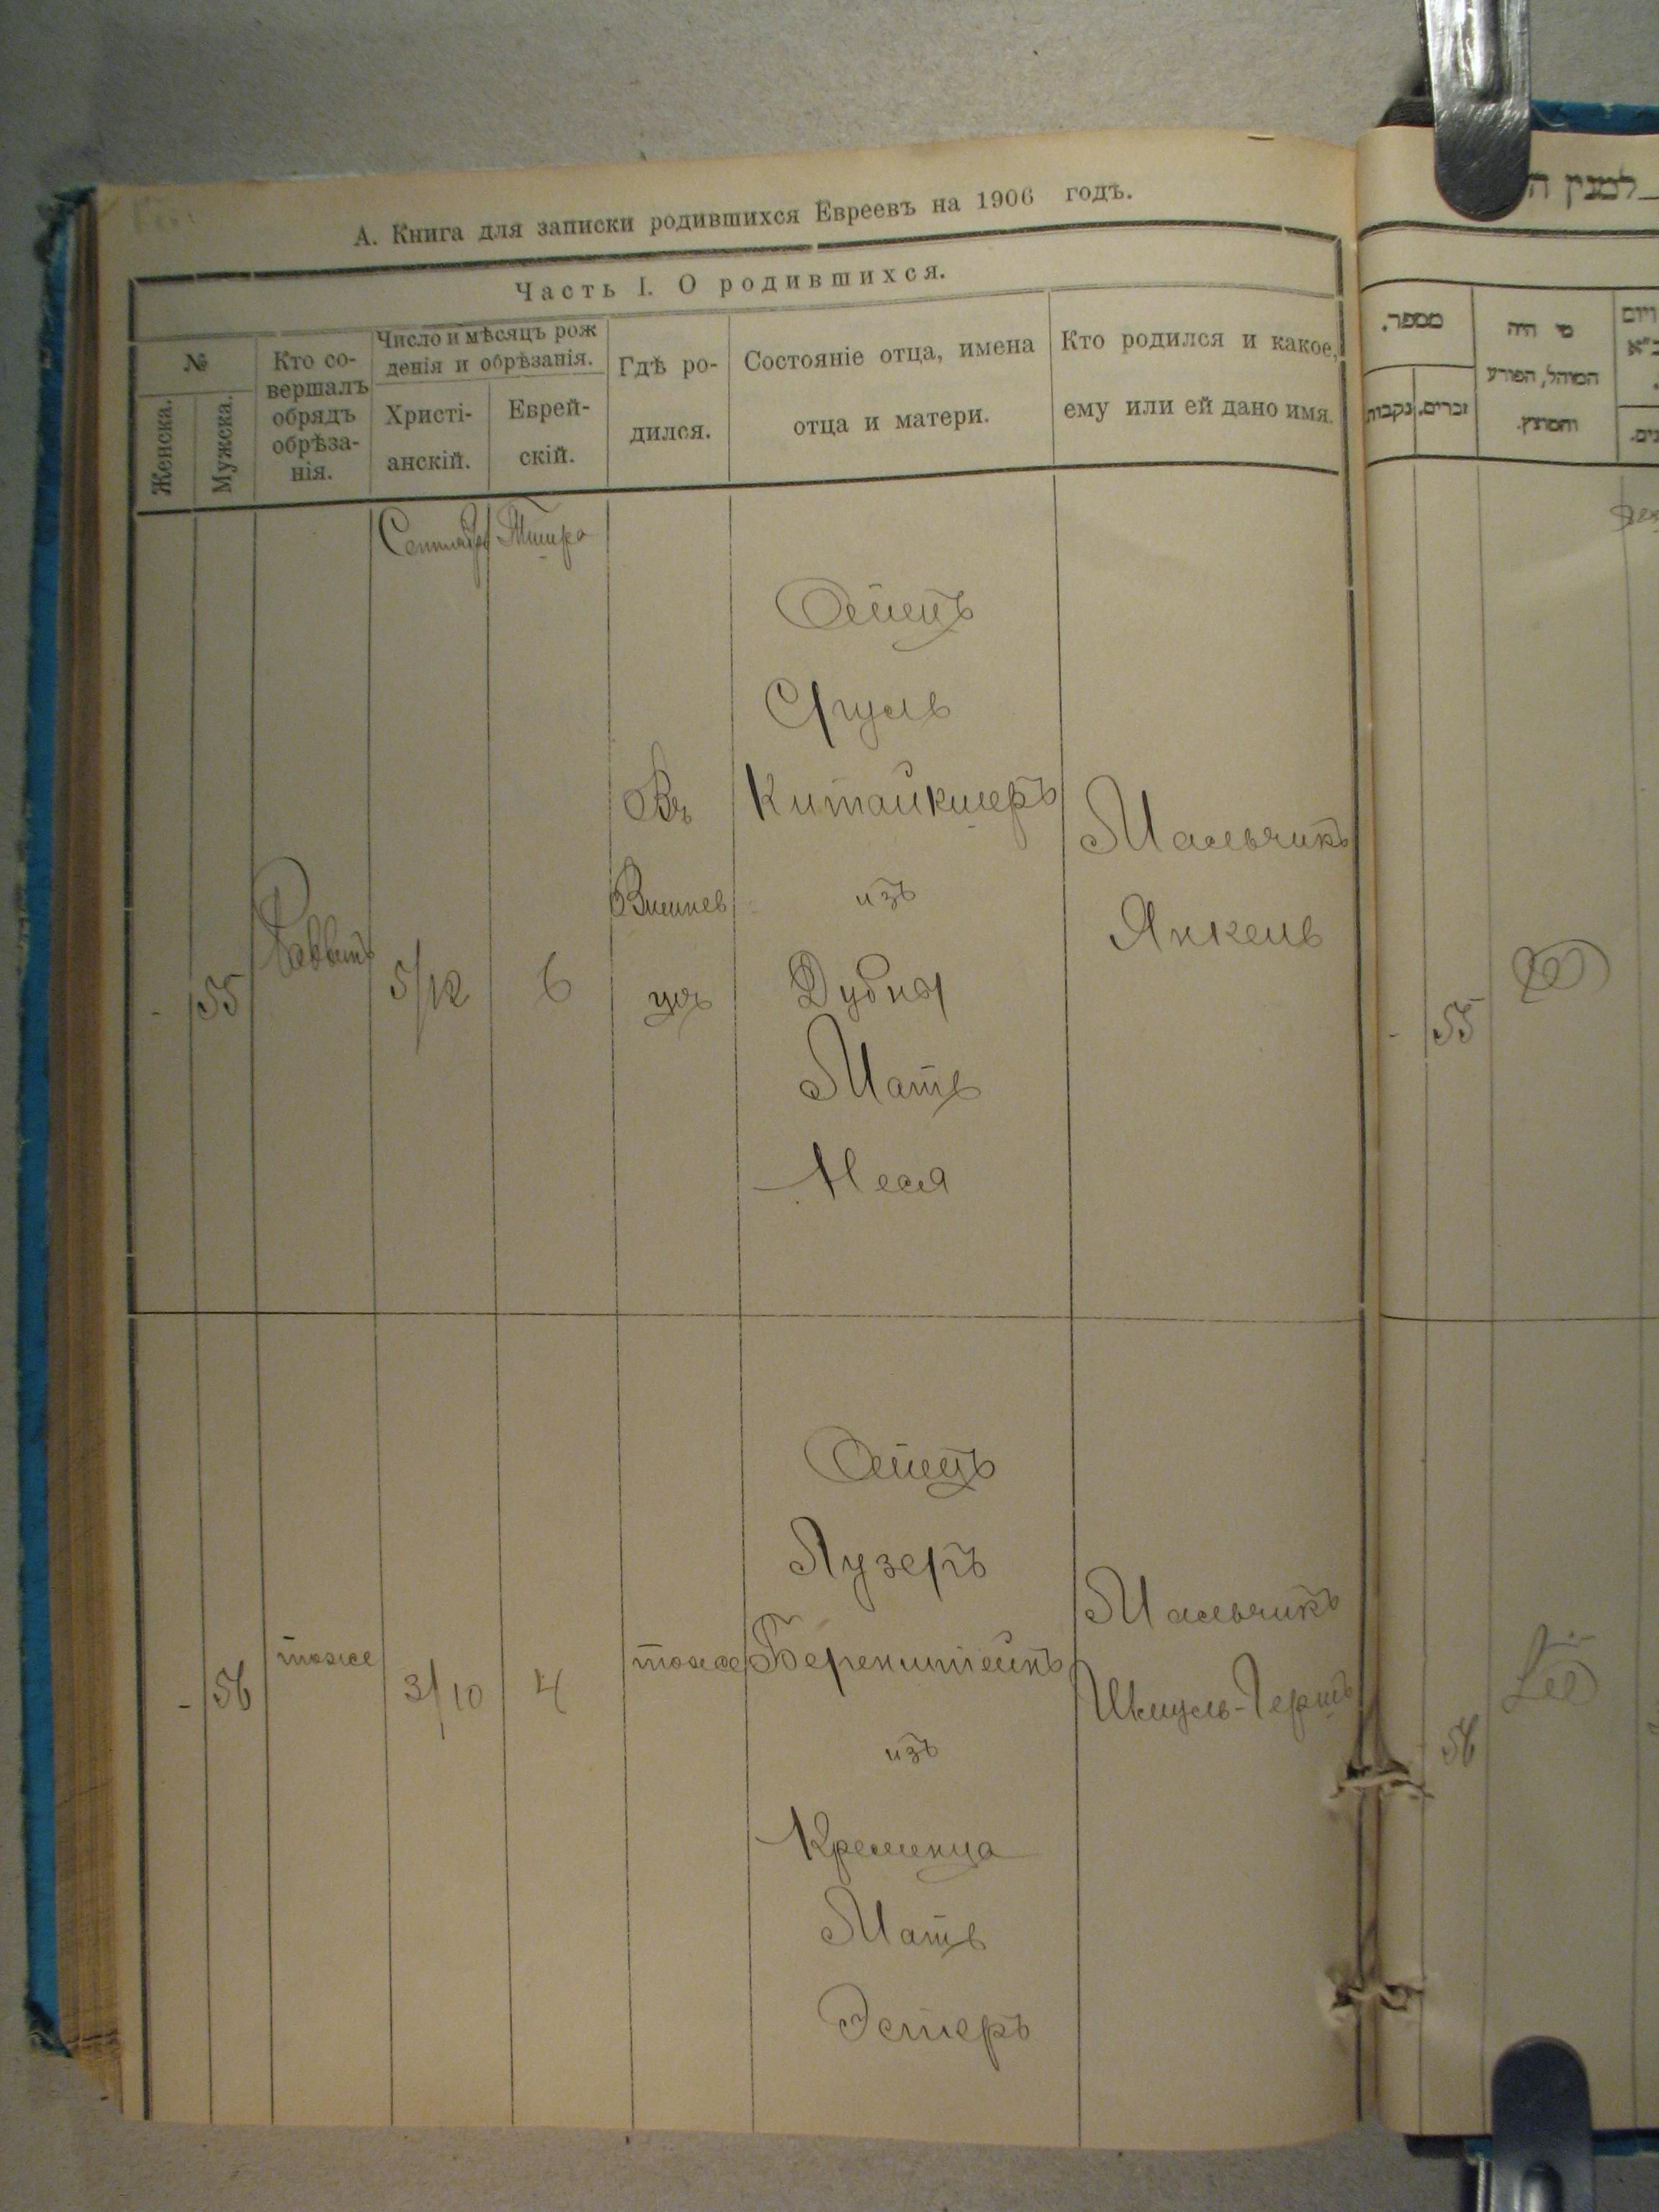 А. Книга для записки родившихся Евреевъ на 1906 годъ.
Часть I. О родившихся.
№
Женска.
Мужска.
Кто со-
вершалъ
обрядъ
обрѣза-
нія.
Число и мѣсяцъ рож
денія и обрѣзанія.
Христі-
анскій.
Еврей-
скій.
Гдѣ ро-
дился.
Состояніе отца, имена
отца и матери.
Кто родился и какое,
ему или ей дано имя.
Сентябрь
Тишри
-
55
Раввинъ
5/12
6
Въ
Вишнев
цѣ
Отецъ
Сруль
из
Дубна
Мать
Неся
Мальчикъ
Янкель
-
56
тоже
3/10
4
тоже
Отецъ
Лузеръ
Беренштейнъ
изъ
Кременца
Мать
Эстеръ
Мальчикъ
Шмуль-Гершъ
למנין ה
מספר.
נקבות
זכרים.
מי היה
המוהל, הפורע
והמוצץ.
- 55
56